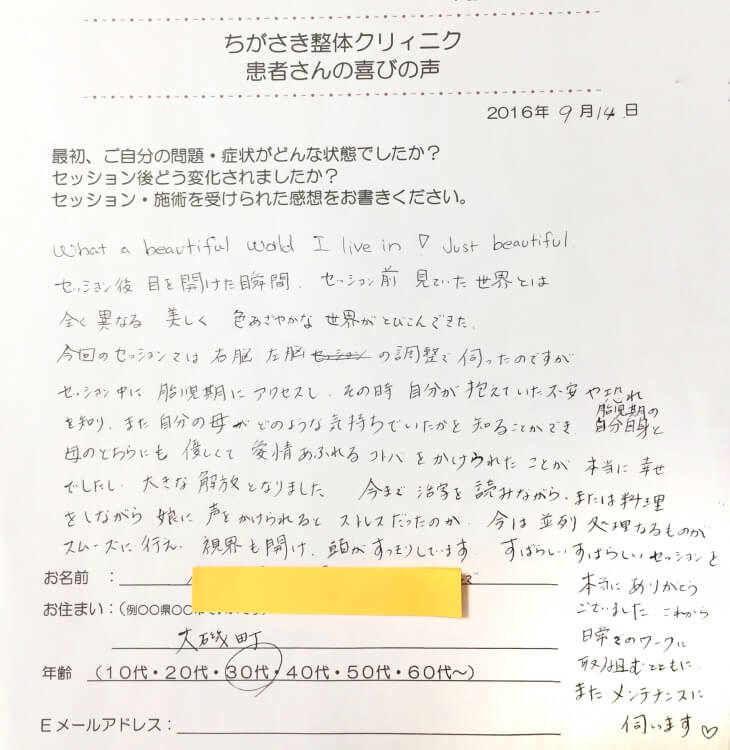 ちがさき整体クリィニク
患者さんの喜びの声
2016年 9月14.日
最初、ご自分の問題・症状がどんな状態でしたか？
セッション後どう変化されましたか？
セッション・施術を受けられた感想をお書きください。
What a beautiful world I live in ♡ Just beautiful
セッション後 目を開けた瞬間. セッション前 見ていた 世界とは
全く異なる 美しく 色あざやかな 世界がとびこんできた.
今回のセッションでは 右脳 左脳 セッション の調整で 伺ったのですが
セッション中に 胎児期に アクセスし. その時 自分が 抱えていた 不安 や 恐れ
を知り. また 自分の母が どのような 気持ちでいたかを 知ることができ. 胎児期の
自分自身と
母のどちらにも 優しくて 愛情 あふれる コトバ をかけられた ことが 本当に 幸せ
でしたし. 大きな 解放 となりました. 今まで 活字を 読みながら. または 料理
をしながら 娘に 声をかけられると ストレスだったのが. 今は 並列 処理なるものが
スムーズに 行え. 視界も開け. 頭がすっきりしています. すばらしい すばらしい セッションと
お名前 ：
お住まい：（例〇〇県〇〇市
大磯町
年齢 （10代・20代・30代・40代・50代・60代～）
Eメールアドレス：
本当に ありがとう
ございました これから
日常でのワークに
取り組むとともに.
また メンテナンスに
伺います♡